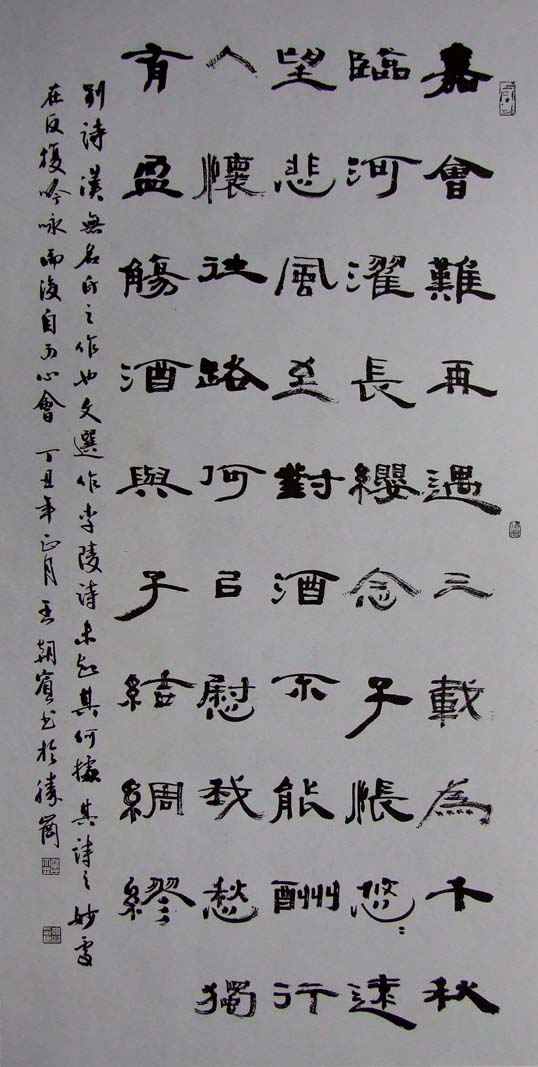 嘉會難再遇三載為千秋
臨河濯長纓念子悵悠〻遠
望悲風至對酒不能酬行
人懷往路何㠯慰我愁獨
有盈觴酒與子結綢繆
別詩漢無名氏之作也文選作李陵詩未知其何據其詩之妙處
在反復吟咏而後自可心會丁丑年正月王朝賓書於